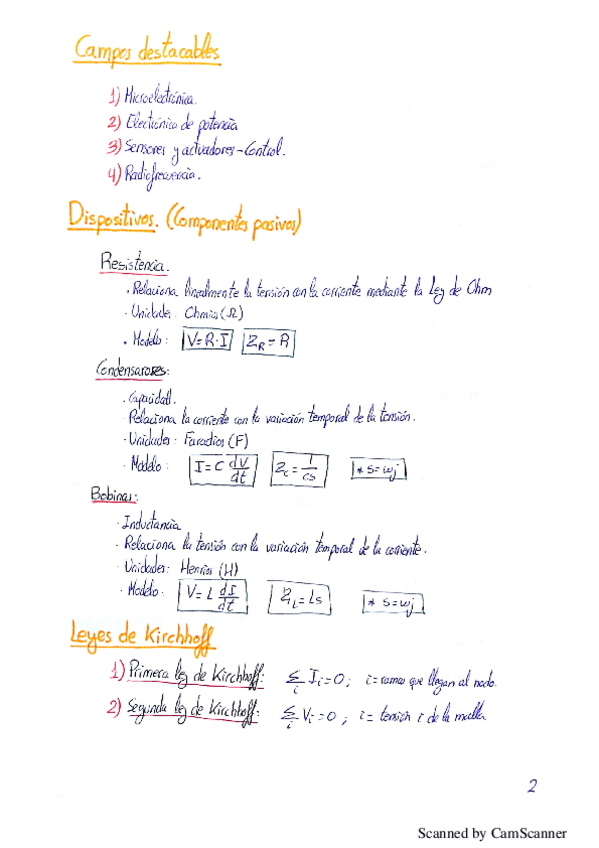 Campos destacables
1) Microelectrónica.
2) Electrónica de potencia
3) Sensores y actuadores - Control.
4) Radiofrecuencia.
Dispositivos. (Componentes pasivos)
Resistencia.
· Relaciona linealmente la tensión con la corriente mediante la Ley de Ohm
· Unidades: Ohmios (Ω)
· Modelo: V=R·I Z_R = R
Condensarores:
· Capacidad.
· Relaciona la corriente con la variación temporal de la tensión.
· Unidades: Faradios (F)
· Modelo: I = C dV/dt Z_c = 1/cs * s=ωj
Bobinas:
· Inductancia
· Relaciona la tensión con la variación temporal de la corriente.
· Unidades: Henrios (H)
· Modelo: V = L dI/dt Z_L = Ls * s=ωj
Leyes de Kirchhoff
1) Primera ley de Kirchhoff: Σ_i I_i = 0; i = ramas que llegan al nodo.
2) Segunda ley de Kirchhoff: Σ_i V_i = 0; i = tensión i de la malla
2
Scanned by CamScanner